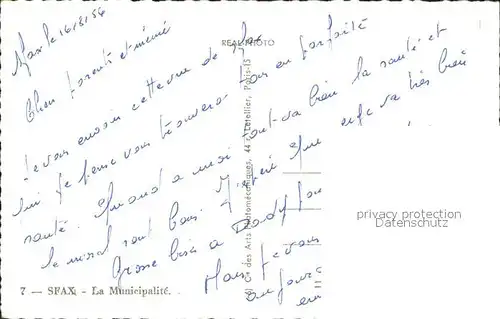 Sfax le 16/8/56
Chers parents et mémé
Je vous envoie cette vue de Sfax
où je pense vous trouverez tous en parfaite
santé. Quand a moi tout va bien la santé et
le moral sont bons. J'espère que cela va très bien
Grosse bise a Dady
Mais je vous
toujours
en
REAL PHOTO
Cie des Arts Photomécaniques, 44 r. Letellier, Paris-15
7 — SFAX - La Municipalité.
privacy protection
Datenschutz